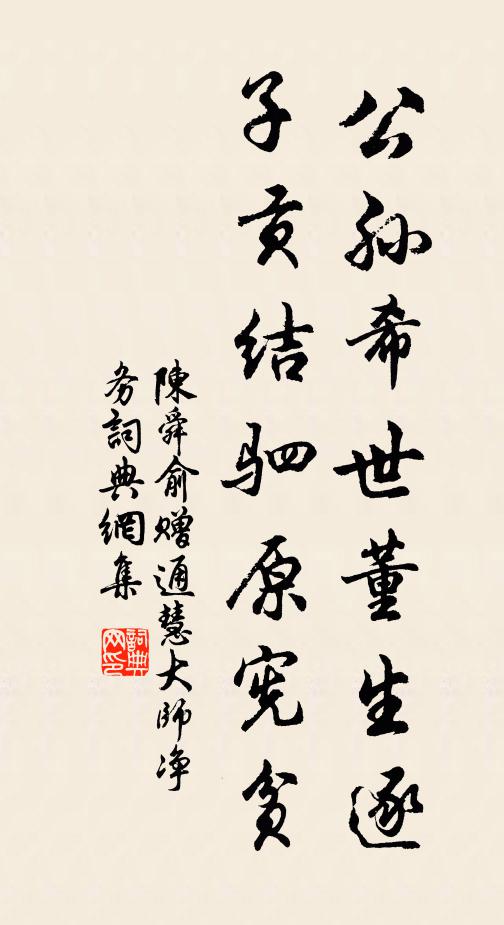 公孙希世董生逐
子贡结驷原宪贫
陳舜俞赠通慧大師净
务詞典網集
詞典网印